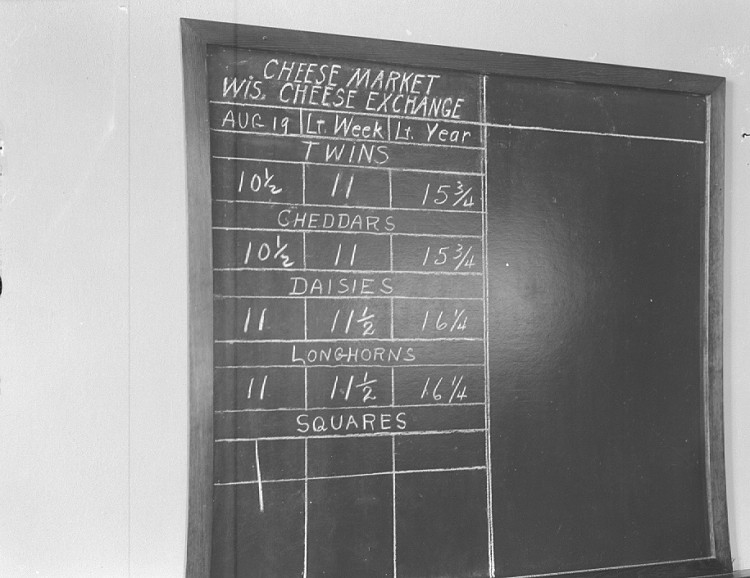 CHEESE MARKET
WIS. CHEESE EXCHANGE
AUG 19 Lt. Week Lt. Year
TWINS
10½ 11 15¾
CHEDDARS
10½ 11 15¾
DAISIES
11 11½ 16¼
LONGHORNS
11 11½ 16¼
SQUARES